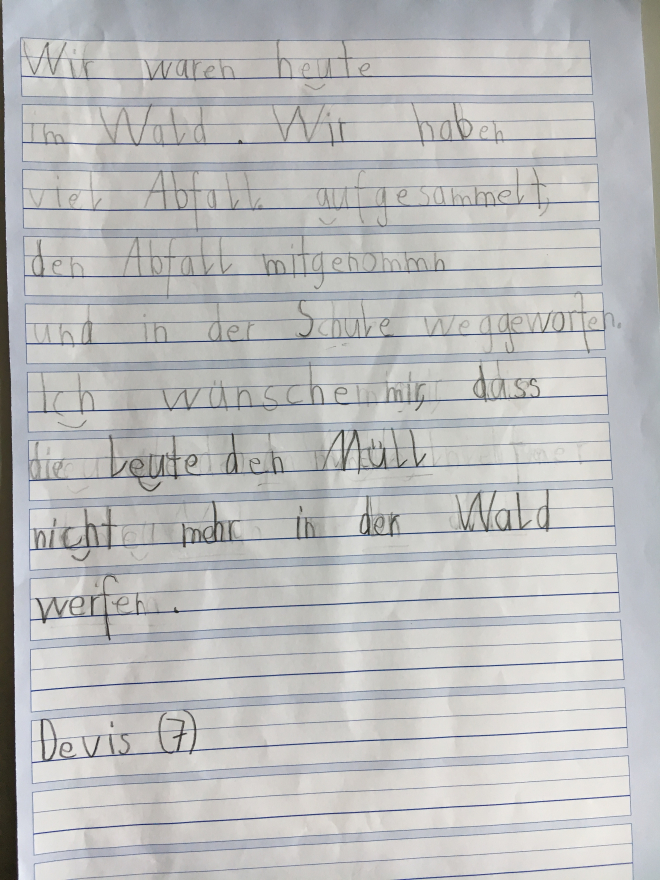 Wir waren heute
im Wald. Wir haben
viel Abfall aufgesammelt,
den Abfall mitgenommn
und in der Schule weggeworfen.
Ich wünsche mir, dass
die Leute den Müll
nicht mehr in den Wald
werfen.
Devis (7)